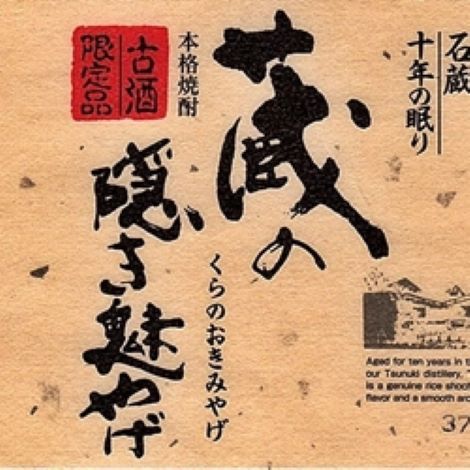 石蔵
十年の眠り
蔵の
くらのおきみやげ
本格焼酎
古酒
限定品
隠き魅やげ
Aged for ten years in t
our Tsunuki distillery, "
is a genuine rice shoc
flavor and a smooth aro
37